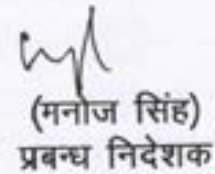 (मनोज सिंह)
प्रबन्ध निदेशक